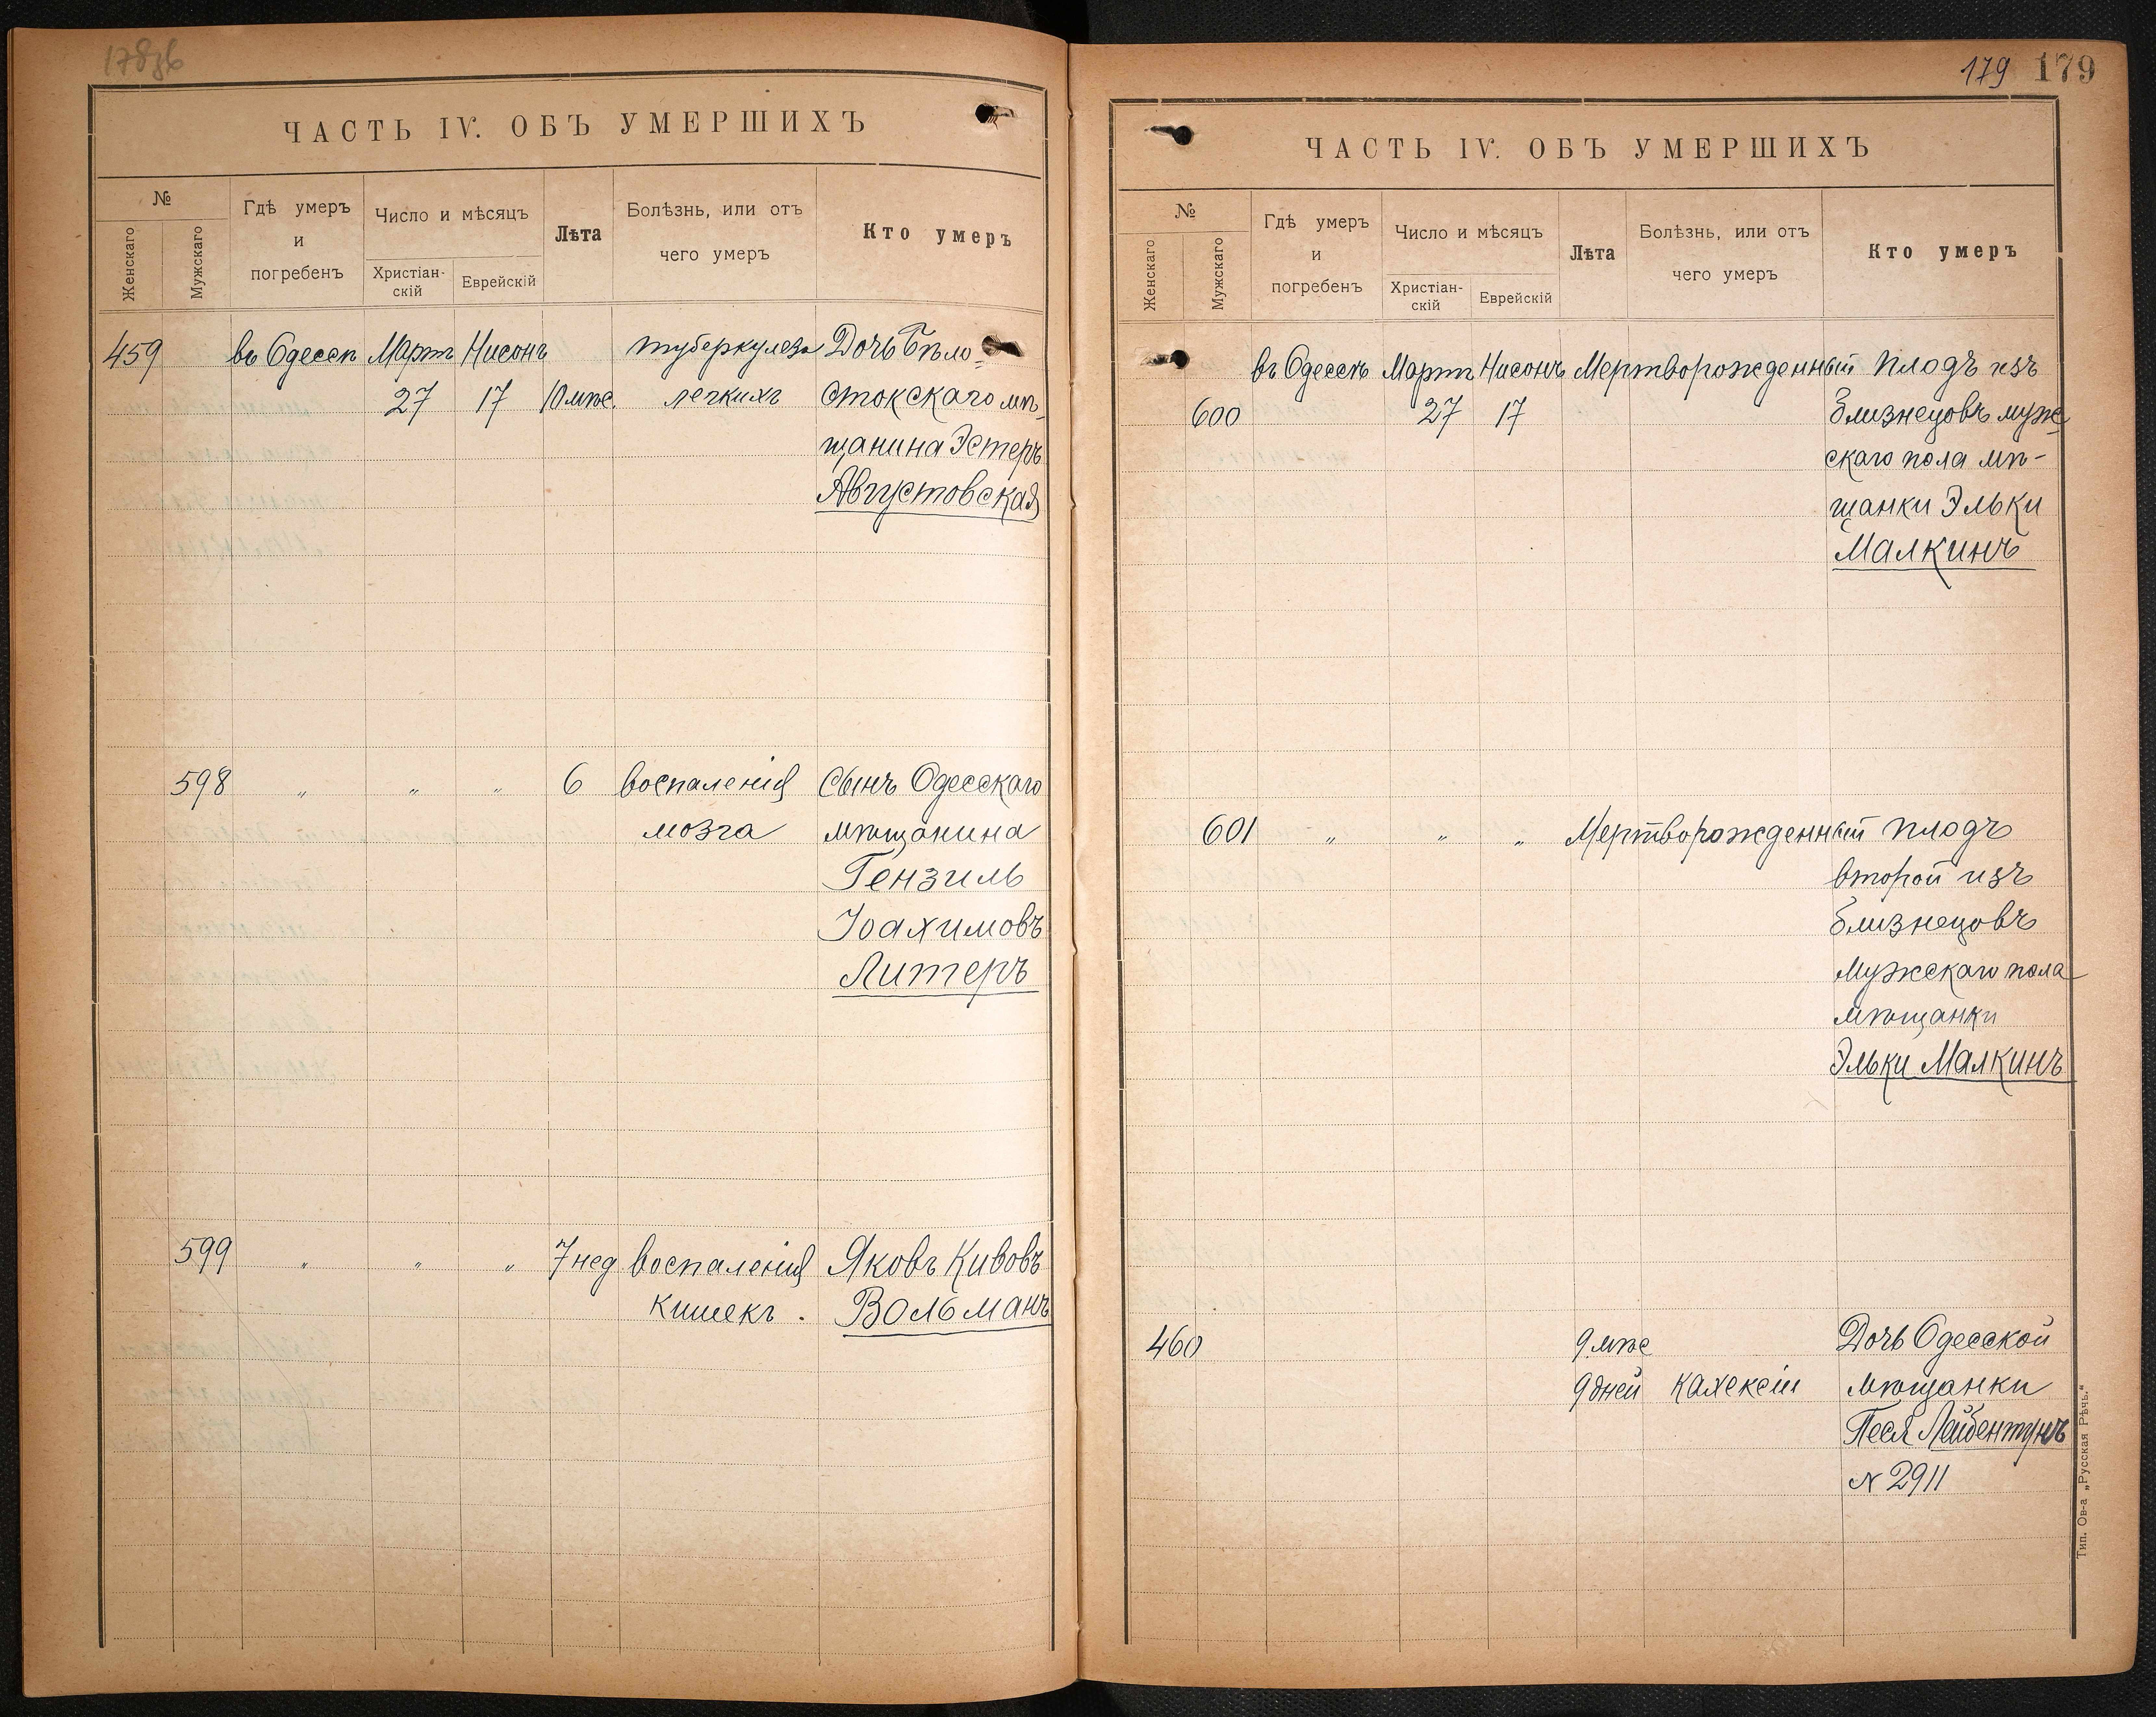 178об
ЧАСТЬ IV. ОБЪ УМЕРШИХЪ
№
Женскаго
Мужскаго
Гдѣ умеръ
и
погребенъ
Число и мѣсяцъ
Христіан-
скій
Еврейскій
Лѣта
Болѣзнь, или отъ
чего умеръ
Кто умеръ
459 въ Одессѣ Мартъ Нисонъ туберкулеза Дочь Бѣло-
27 17 10 мѣс. легкихъ стокскаго мѣ-
щанина Эстеръ
Августовская
598 " " " 6 воспаленія Сынъ Одесскаго
мозга мѣщанина
Гензиль
Іоахимовъ
Литеръ
599 " " " 7 нед воспаленія Яковъ Кивовъ
кишекъ . Вольманъ
179 179
ЧАСТЬ IV. ОБЪ УМЕРШИХЪ
№
Женскаго
Мужскаго
Гдѣ умеръ
и
погребенъ
Число и мѣсяцъ
Христіан-
скій
Еврейскій
Лѣта
Болѣзнь, или отъ
чего умеръ
Кто умеръ
въ Одессѣ Мартъ Нисонъ Мертворожденный плодъ изъ
600 27 17 близнецовъ муж-
скаго пола мѣ-
щанки Эльки
Малкинъ
601 " " " Мертворожденный плодъ
второй изъ
близнецовъ
мужскаго пола
мѣщанки
Эльки Малкинъ
460 9 мѣс Дочь Одесской
9 дней кахексіи мѣщанки
Песя Лейбентунъ
№ 2911
Тип. Ов-а „Русская Рѣчь.“